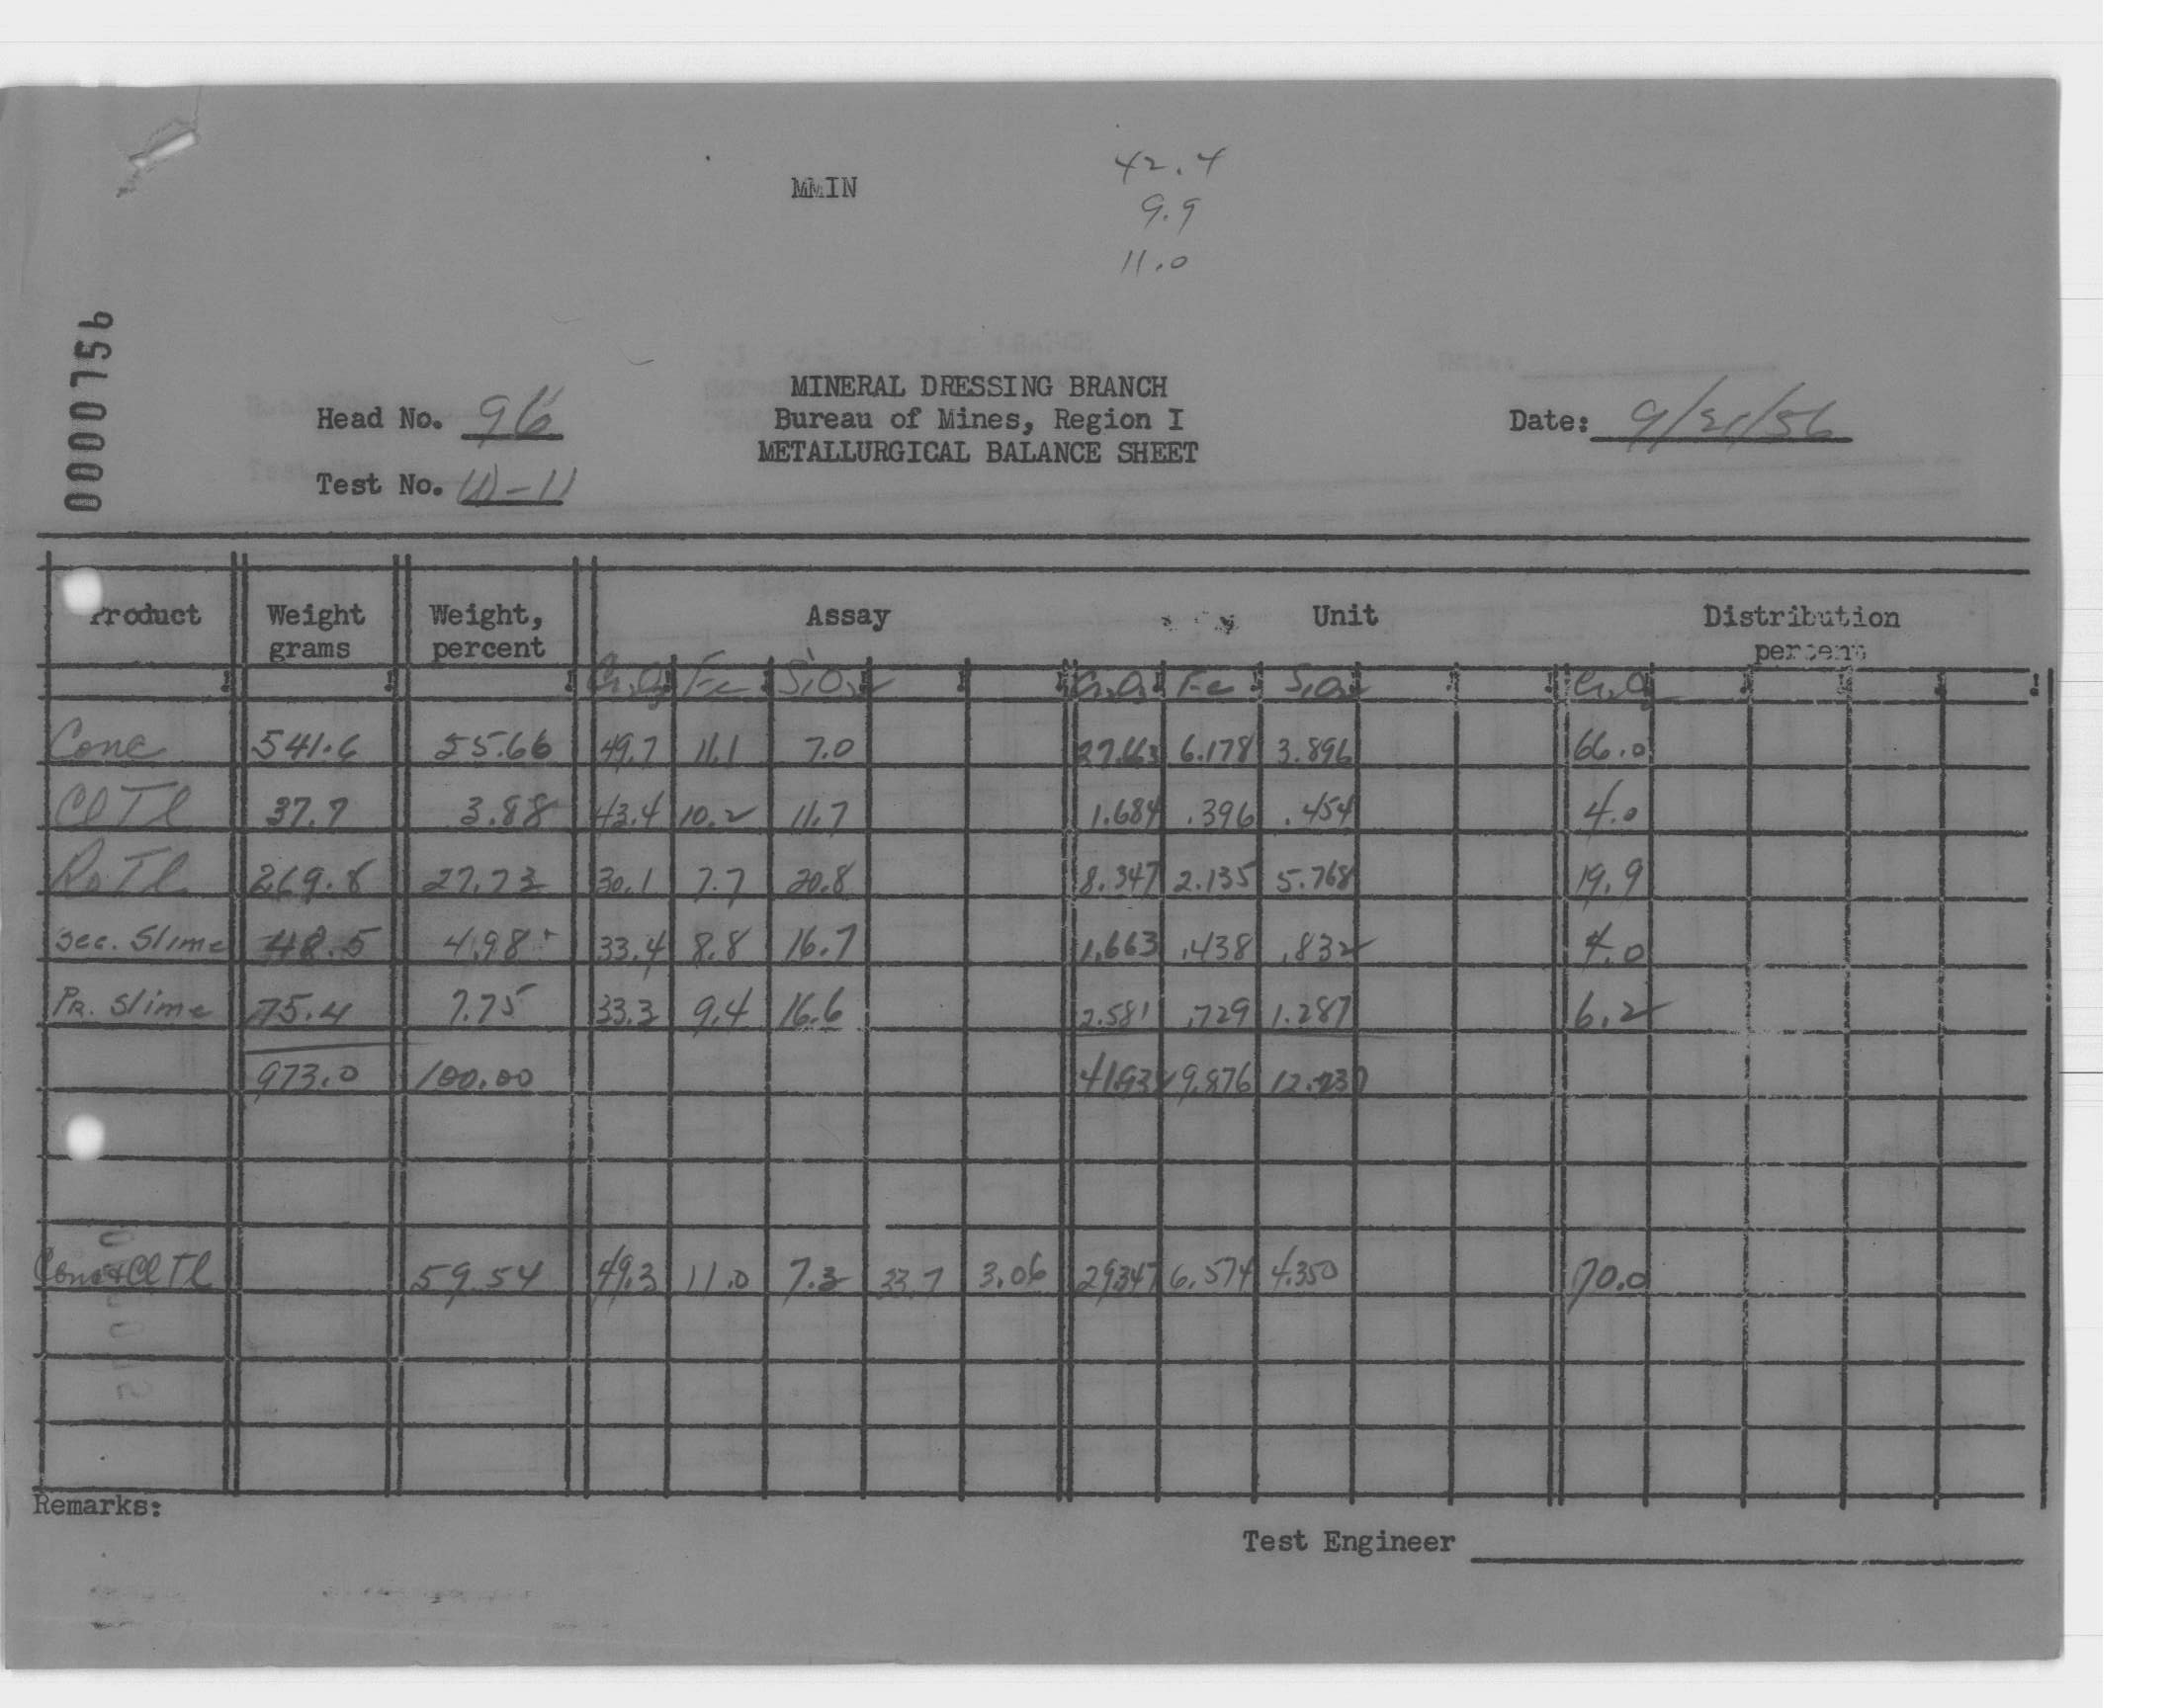 42.4
MMIN
9.9
11.0
000756
MINERAL DRESSING BRANCH
Head No. 96 Bureau of Mines, Region I Date: 9/21/56
METALLURGICAL BALANCE SHEET
Test No. W-11
Product Weight grams Weight, percent Assay Unit Distribution percent
Cr2O3 Fe SiO2 Cr2O3 Fe SiO2 Cr2O3
Conc 541.6 55.66 49.7 11.1 7.0 27.663 6.178 3.896 66.0
Cl Tl 37.7 3.88 43.4 10.2 11.7 1.684 .396 .454 4.0
Ro Tl 269.8 27.73 30.1 7.7 20.8 8.347 2.135 5.768 19.9
Sec. Slime 48.5 4.98 33.4 8.8 16.7 1.663 .438 .832 4.0
PR. Slime 75.4 7.75 33.3 9.4 16.6 2.581 .729 1.287 6.2
973.0 100.00 9.876
Conc + Cl Tl 59.54 49.3 11.0 7.3 33.7 3.06 29.347 6.574 4.350 70.0
Remarks:
Test Engineer